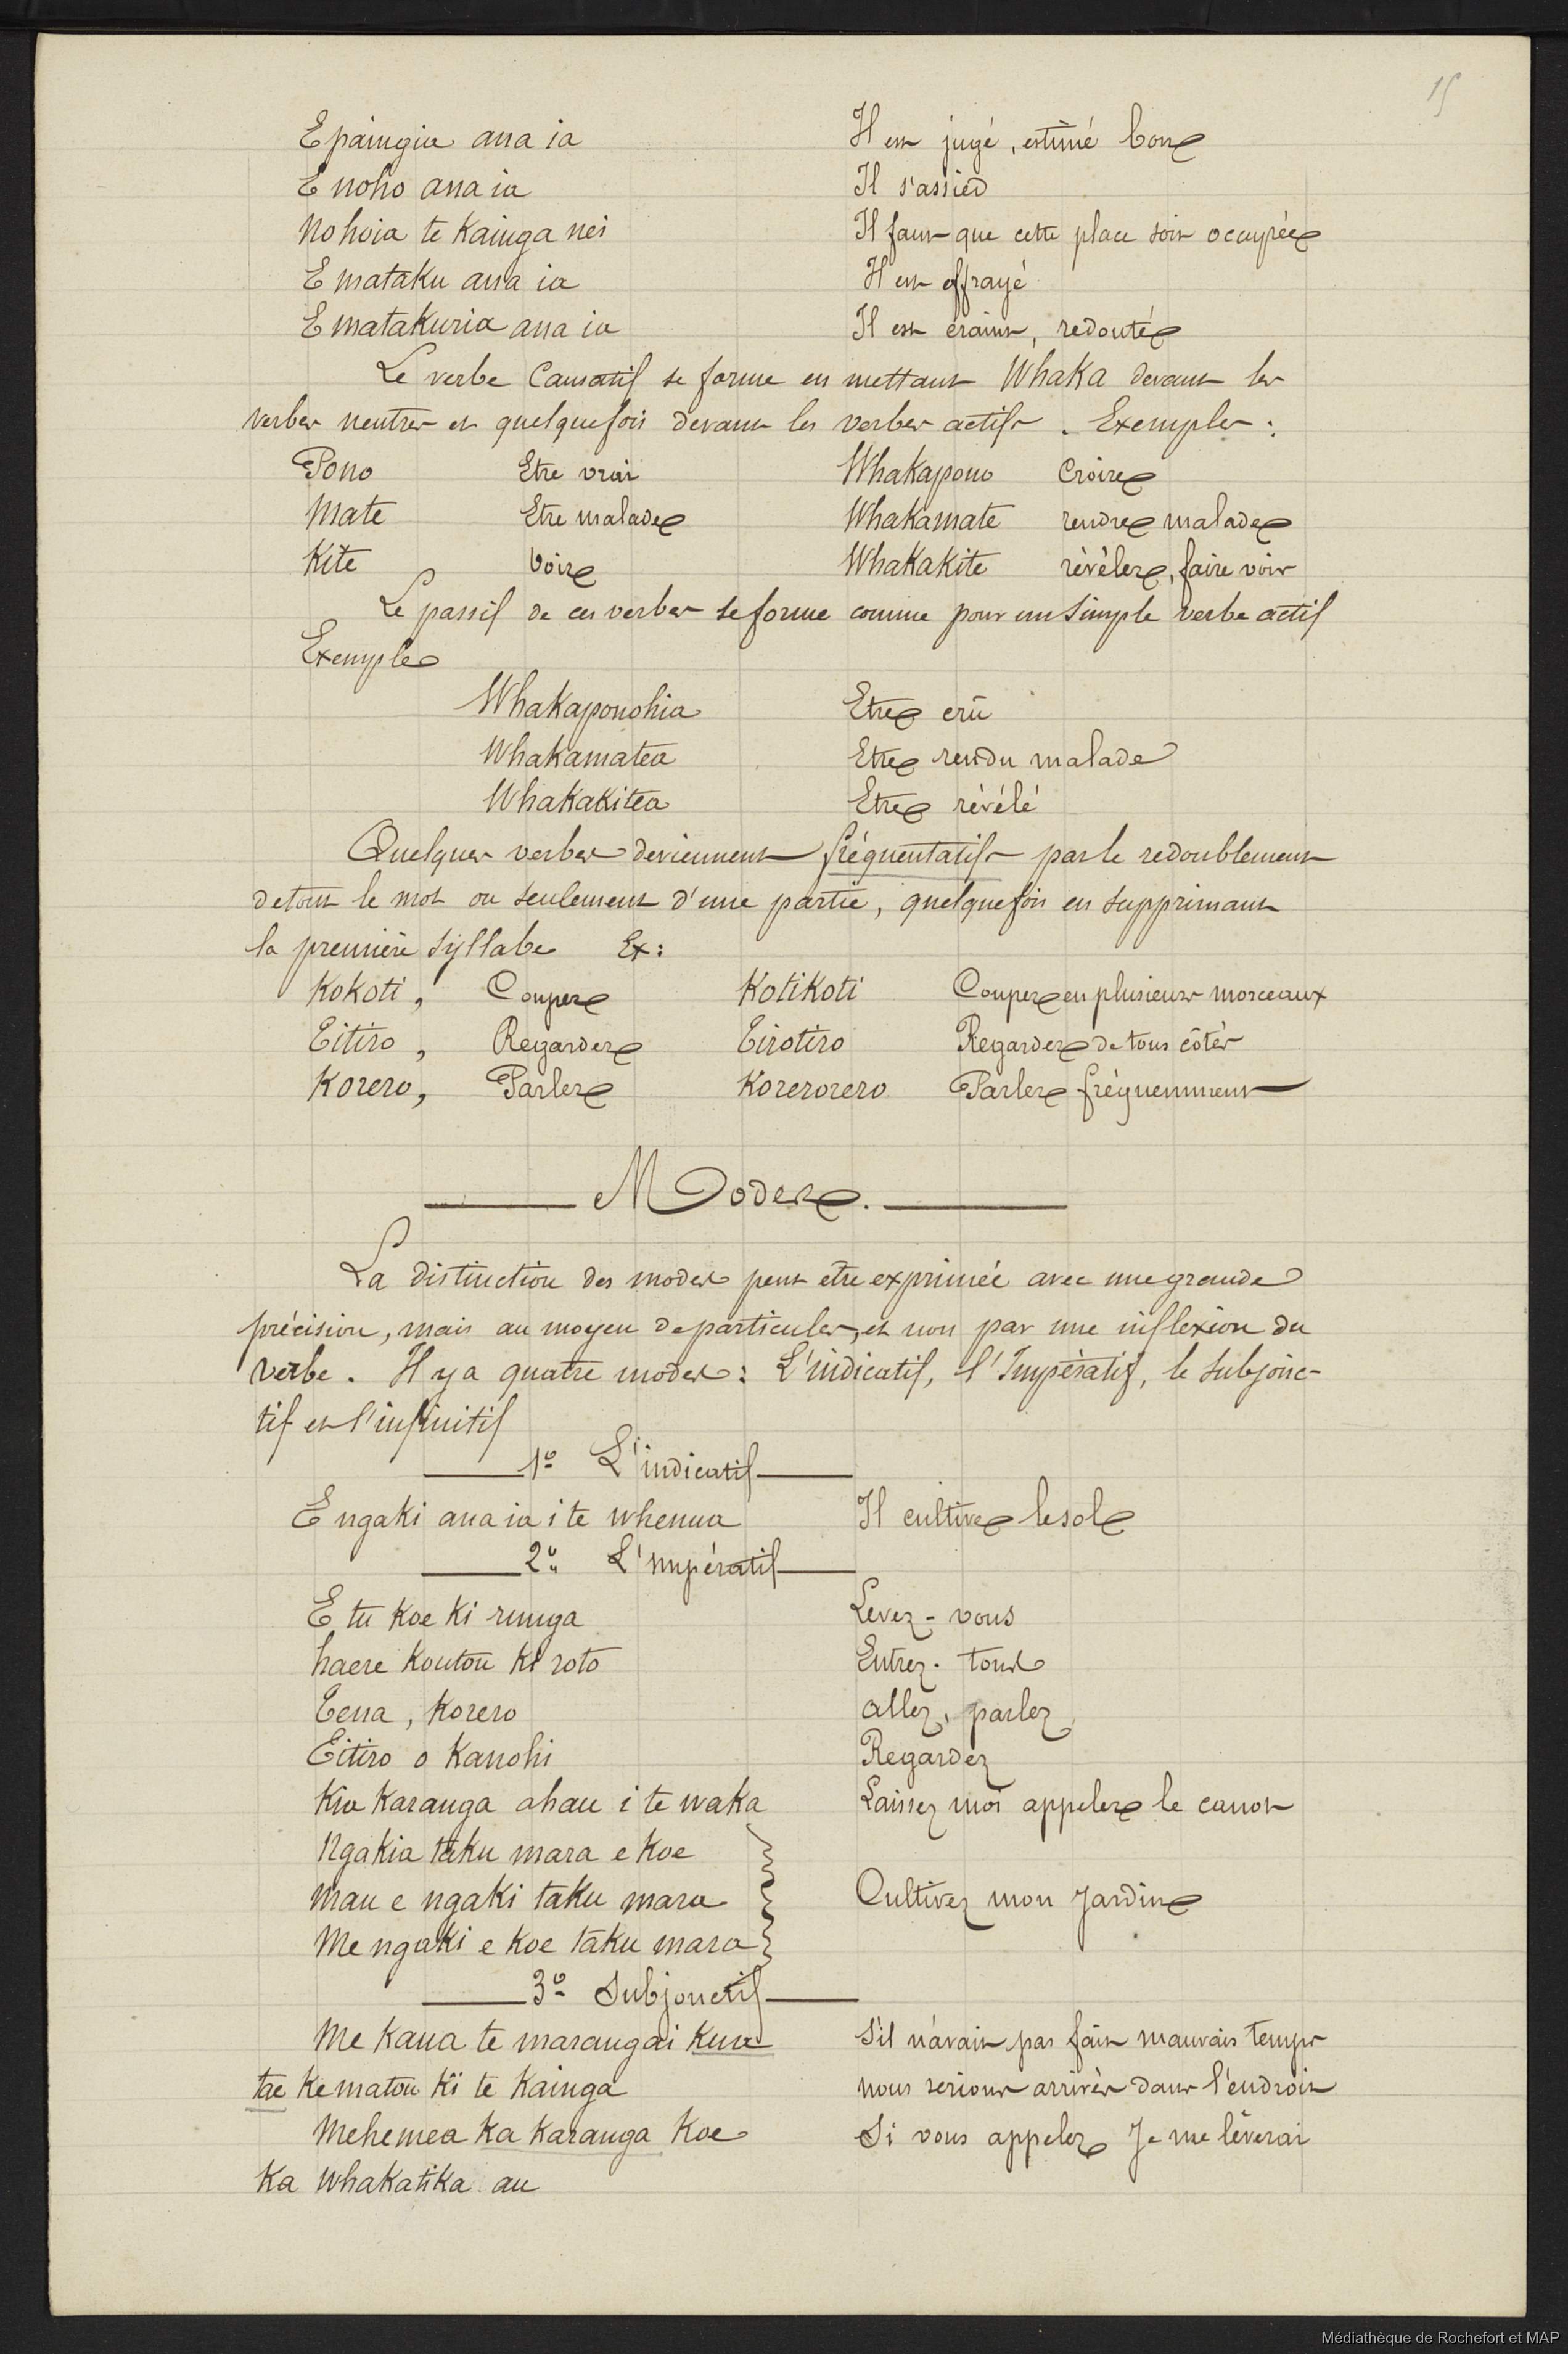 15
E paingia ana ia Il est jugé, estimé bon
E noho ana ia Il s'assied
Nohoia te Kainga nei Il faut que cette place soit occupée
E mataku ana ia Il est effrayé
E matakuria ana ia Il est craint, redouté
Le verbe Causatif se forme en mettant Whaka devant les
verbes neutres et quelquefois devant les verbes actifs. Exemples :
Pono Etre vrai Whakapono Croire
Mate Etre malade Whakamate rendre malade
Kite Voir Whakakite révéler, faire voir
Le passif de ces verbes se forme comme pour un simple verbe actif
Exemple
Whakaponohia Etre crû
Whakamatea Etre rendu malade
Whakakitea Etre révélé
Quelques verbes deviennent fréquentatifs par le redoublement
de tout le mot ou seulement d'une partie, quelquefois en supprimant
la première syllabe Ex :
Kokoti, Couper Kotikoti Couper en plusieurs morceaux
Titiro, Regarder Tirotiro Regarder de tous côtés
Korero, Parler Korerorero Parler fréquemment
Modes.
La distinction des modes peut etre exprimée avec une grande
précision, mais au moyen de particules, et non par une inflexion du
verbe. Il y a quatre modes : L'indicatif, l'Impératif, le subjonc-
tif et l'infinitif
1º L'indicatif
E ngaki ana ia i te whenua Il cultive le sol
2º L'Impératif
E tu Koe Ki runga Levez-vous
haere Koutou Ki roto Entrez-tous
Tena, Korero allez, parlez
Titiro o Kanohi Regardez
Kia Karanga ahau i te waka Laissez moi appeler le canot
Ngakia taku mara e Koe
Mau e ngaki taku mara Cultivez mon Jardin
Me ngaki e Koe taku mara
3º Subjonctif
Me Kaua te marangai Kua S'il n'avait pas fait mauvais temps
tae Ke matou Ki te Kainga nous serions arrivés dans l'endroit
Mehemea Ka Karanga Koe Si vous appelez Je me lèverai
Ka Whakatika au
Médiathèque de Rochefort et MAP